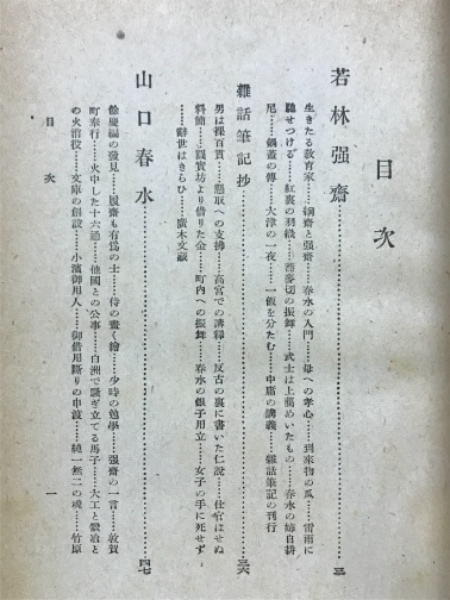 目次
若林强齋……三
生きたる教育家……綱齋と强齋……春水の入門……母への孝心……到來物の瓜……雷雨に
馳せつける……紅裏の羽織……蕎麥切の振舞……武士は上﨟めいたもの……春水の姉自耕
尼……鍋蓋の傳……大津の一夜……一飯を分たむ……中庸の講義……雜話筆記の刊行
雜話筆記抄……三六
男は裸百貫……懸取への支拂……高宮での講釋……反古の裏に書いた仁說……仕官はせぬ
料簡……眞實坊より借りた金……町内への振舞……春水の銀子用立……女子の手に死せず
……辭世はきらひ……廣木文藏
山口春水……四七
餘慶編の發見……風齋も有爲の士……侍の書く繪……少時の勉學……强齋の一言……敦賀
町奉行……火中した十六通……他國との公事……白洲で騷ぎ立てる馬子……大工と鍛冶と
の火消役……文庫の創設……小濱御用人……御借用斷りの申渡……純一無二の魂……竹原
目次 一